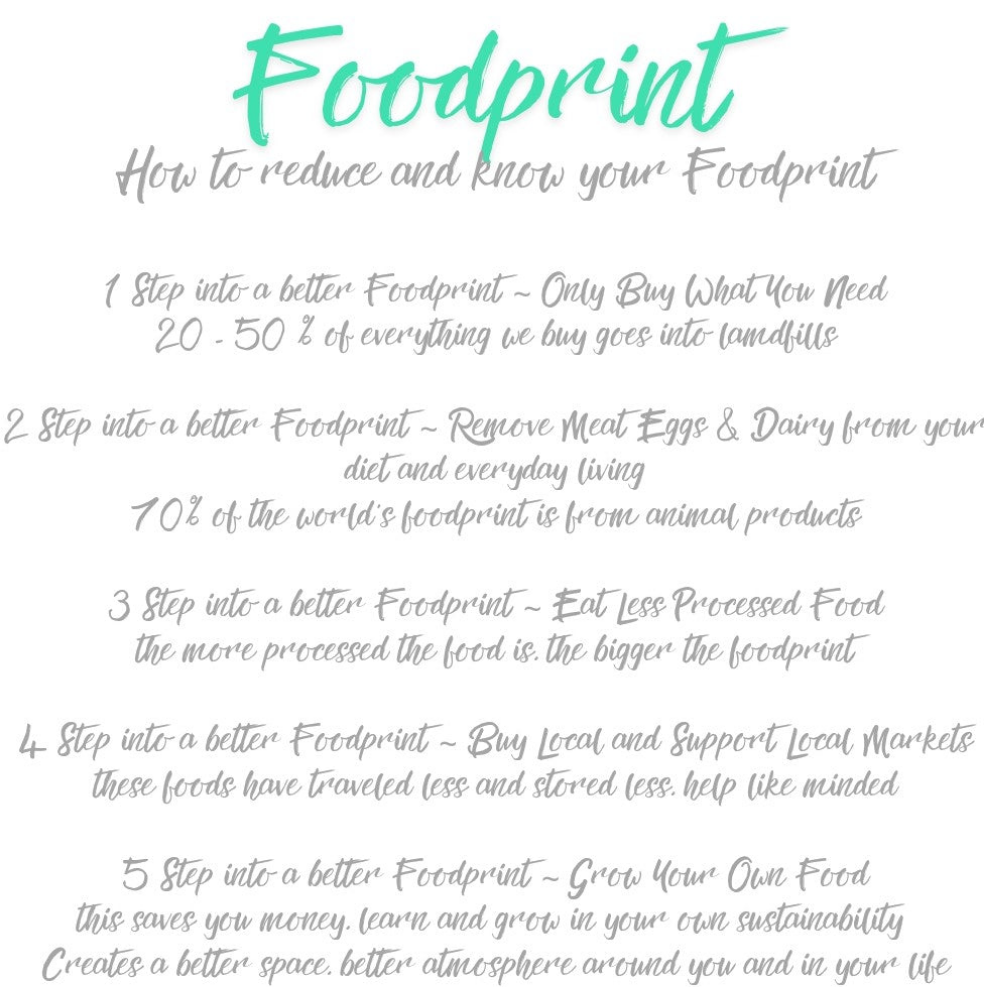 Foodprint
How to reduce and know your Foodprint
1 Step into a better Foodprint ~ Only Buy What You Need
20 - 50 % of everything we buy goes into lamdfills
2 Step into a better Foodprint ~ Remove Meat Eggs & Dairy from your
diet and everyday living
70% of the world's foodprint is from animal products
3 Step into a better Foodprint ~ Eat Less Processed Food
the more processed the food is. the bigger the foodprint
4 Step into a better Foodprint ~ Buy Local and Support Local Markets
these foods have traveled less and stored less. help like minded
5 Step into a better Foodprint ~ Grow Your Own Food
this saves you money. learn and grow in your own sustainability
Creates a better space. better atmosphere around you and in your life